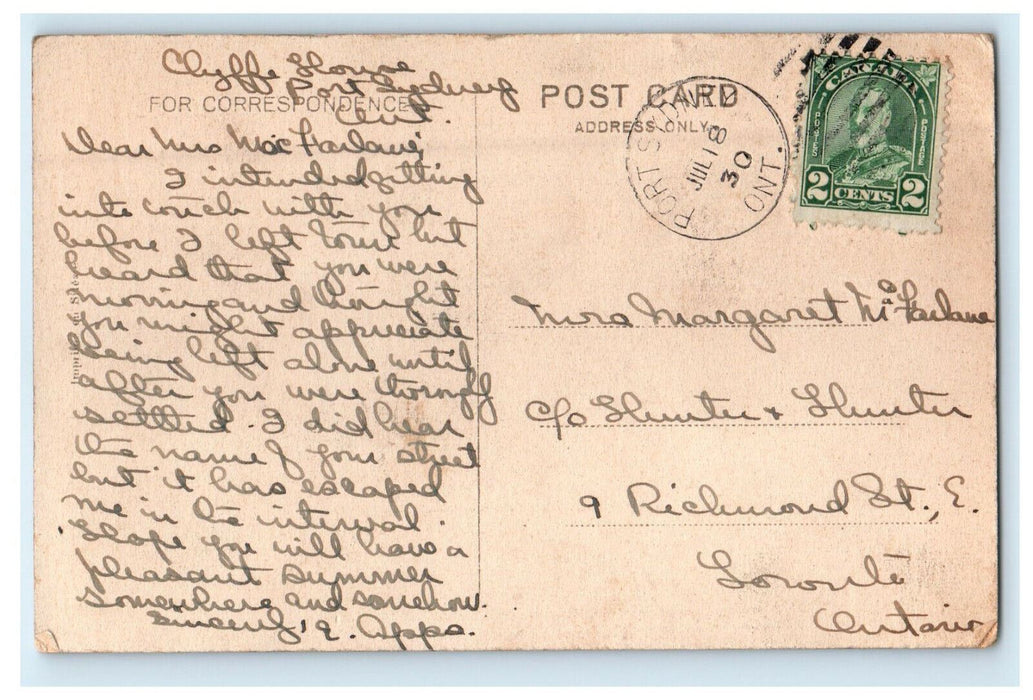 Clyffe House
Port Sydney
Ont.
FOR CORRESPONDENCE
Dear Mrs MacFarlane,
I intended getting
into touch with you
before I left town but
heard that you were
moving and thought
you might appreciate
being left alone until
after you were thoroughly
settled. I did hear
the name of your street
but it has escaped
me in the interval.
Hope you will have a
pleasant summer
somewhere and somehow.
Sincerely, E. Apps.
POST CARD
ADDRESS ONLY
PORT SYDNEY
JUL 18
30
ONT.
CANADA
POSTES
POSTAGE
2 CENTS 2
Mrs Margaret McFarlane
c/o Hunter & Hunter
9 Richmond St., E.
Toronto
Ontario